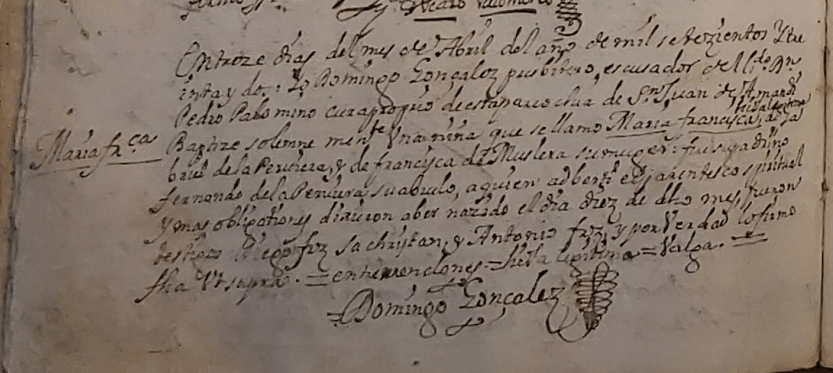 Pedro Palomino
En treze dias del mes de Abril del año de mil setezientos Y tre
inta y dos: Yo Domingo Gonçalez presbitero, escusador del lizdo Dn
Pedro Palomino cura proprio de esta parrochia de Sn Juan de Amandi
Baptize solemne mente Vna niña que se llamo Maria francisca, de ga
hija legitima
Maria frca
briel de la Peruiera, y de francisca de Muslera su muger: fue su padrino
fernando de la Peruiera su abuelo, a quien adberti el parentesco spiritual
Y mas obligationes dixeron aber nazido el dia diez de dho mes, fueron
testigos Diego frz sachristan, y Antonio frz, y por Verdad lo firmo
fha Vt supra. = entrerrenglones = hija legitima = Valga. =
Domingo Gonçalez